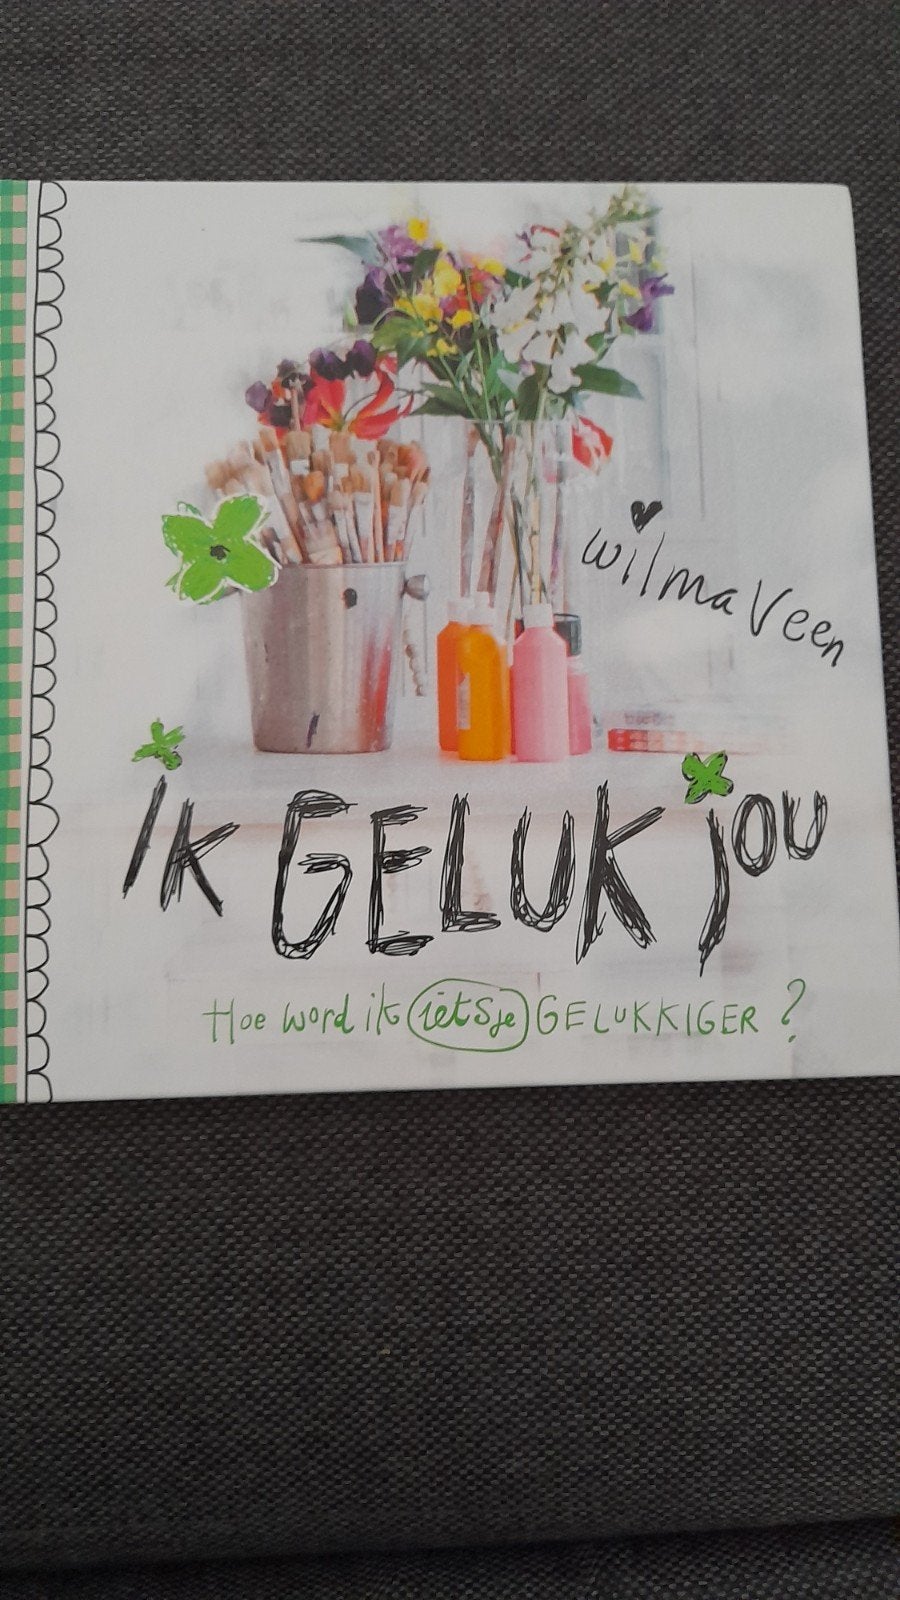 wilma Veen
iK GELUK jou
Hoe word ik ietsje GELUKKIGER?